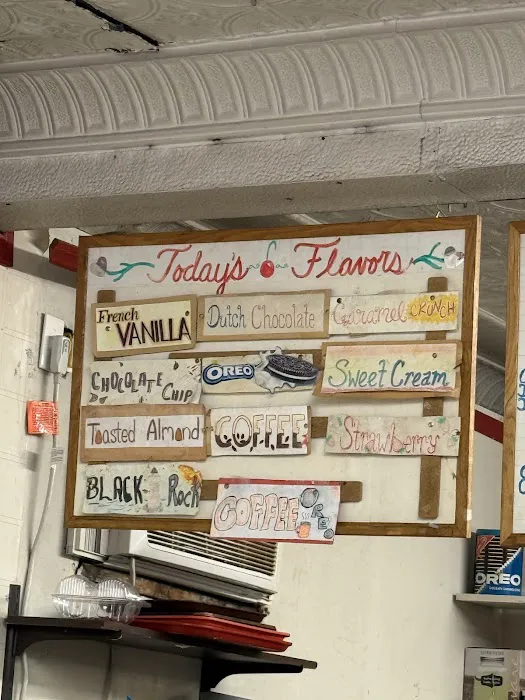 Today's Flavors
French
VANILLA
Dutch Chocolate
Caramel CRUNCH
CHOCOLATE CHIP
OREO
Sweet Cream
Toasted Almond
COFFEE
Strawberry
BLACK Rock
COFFEE OREO
OREO